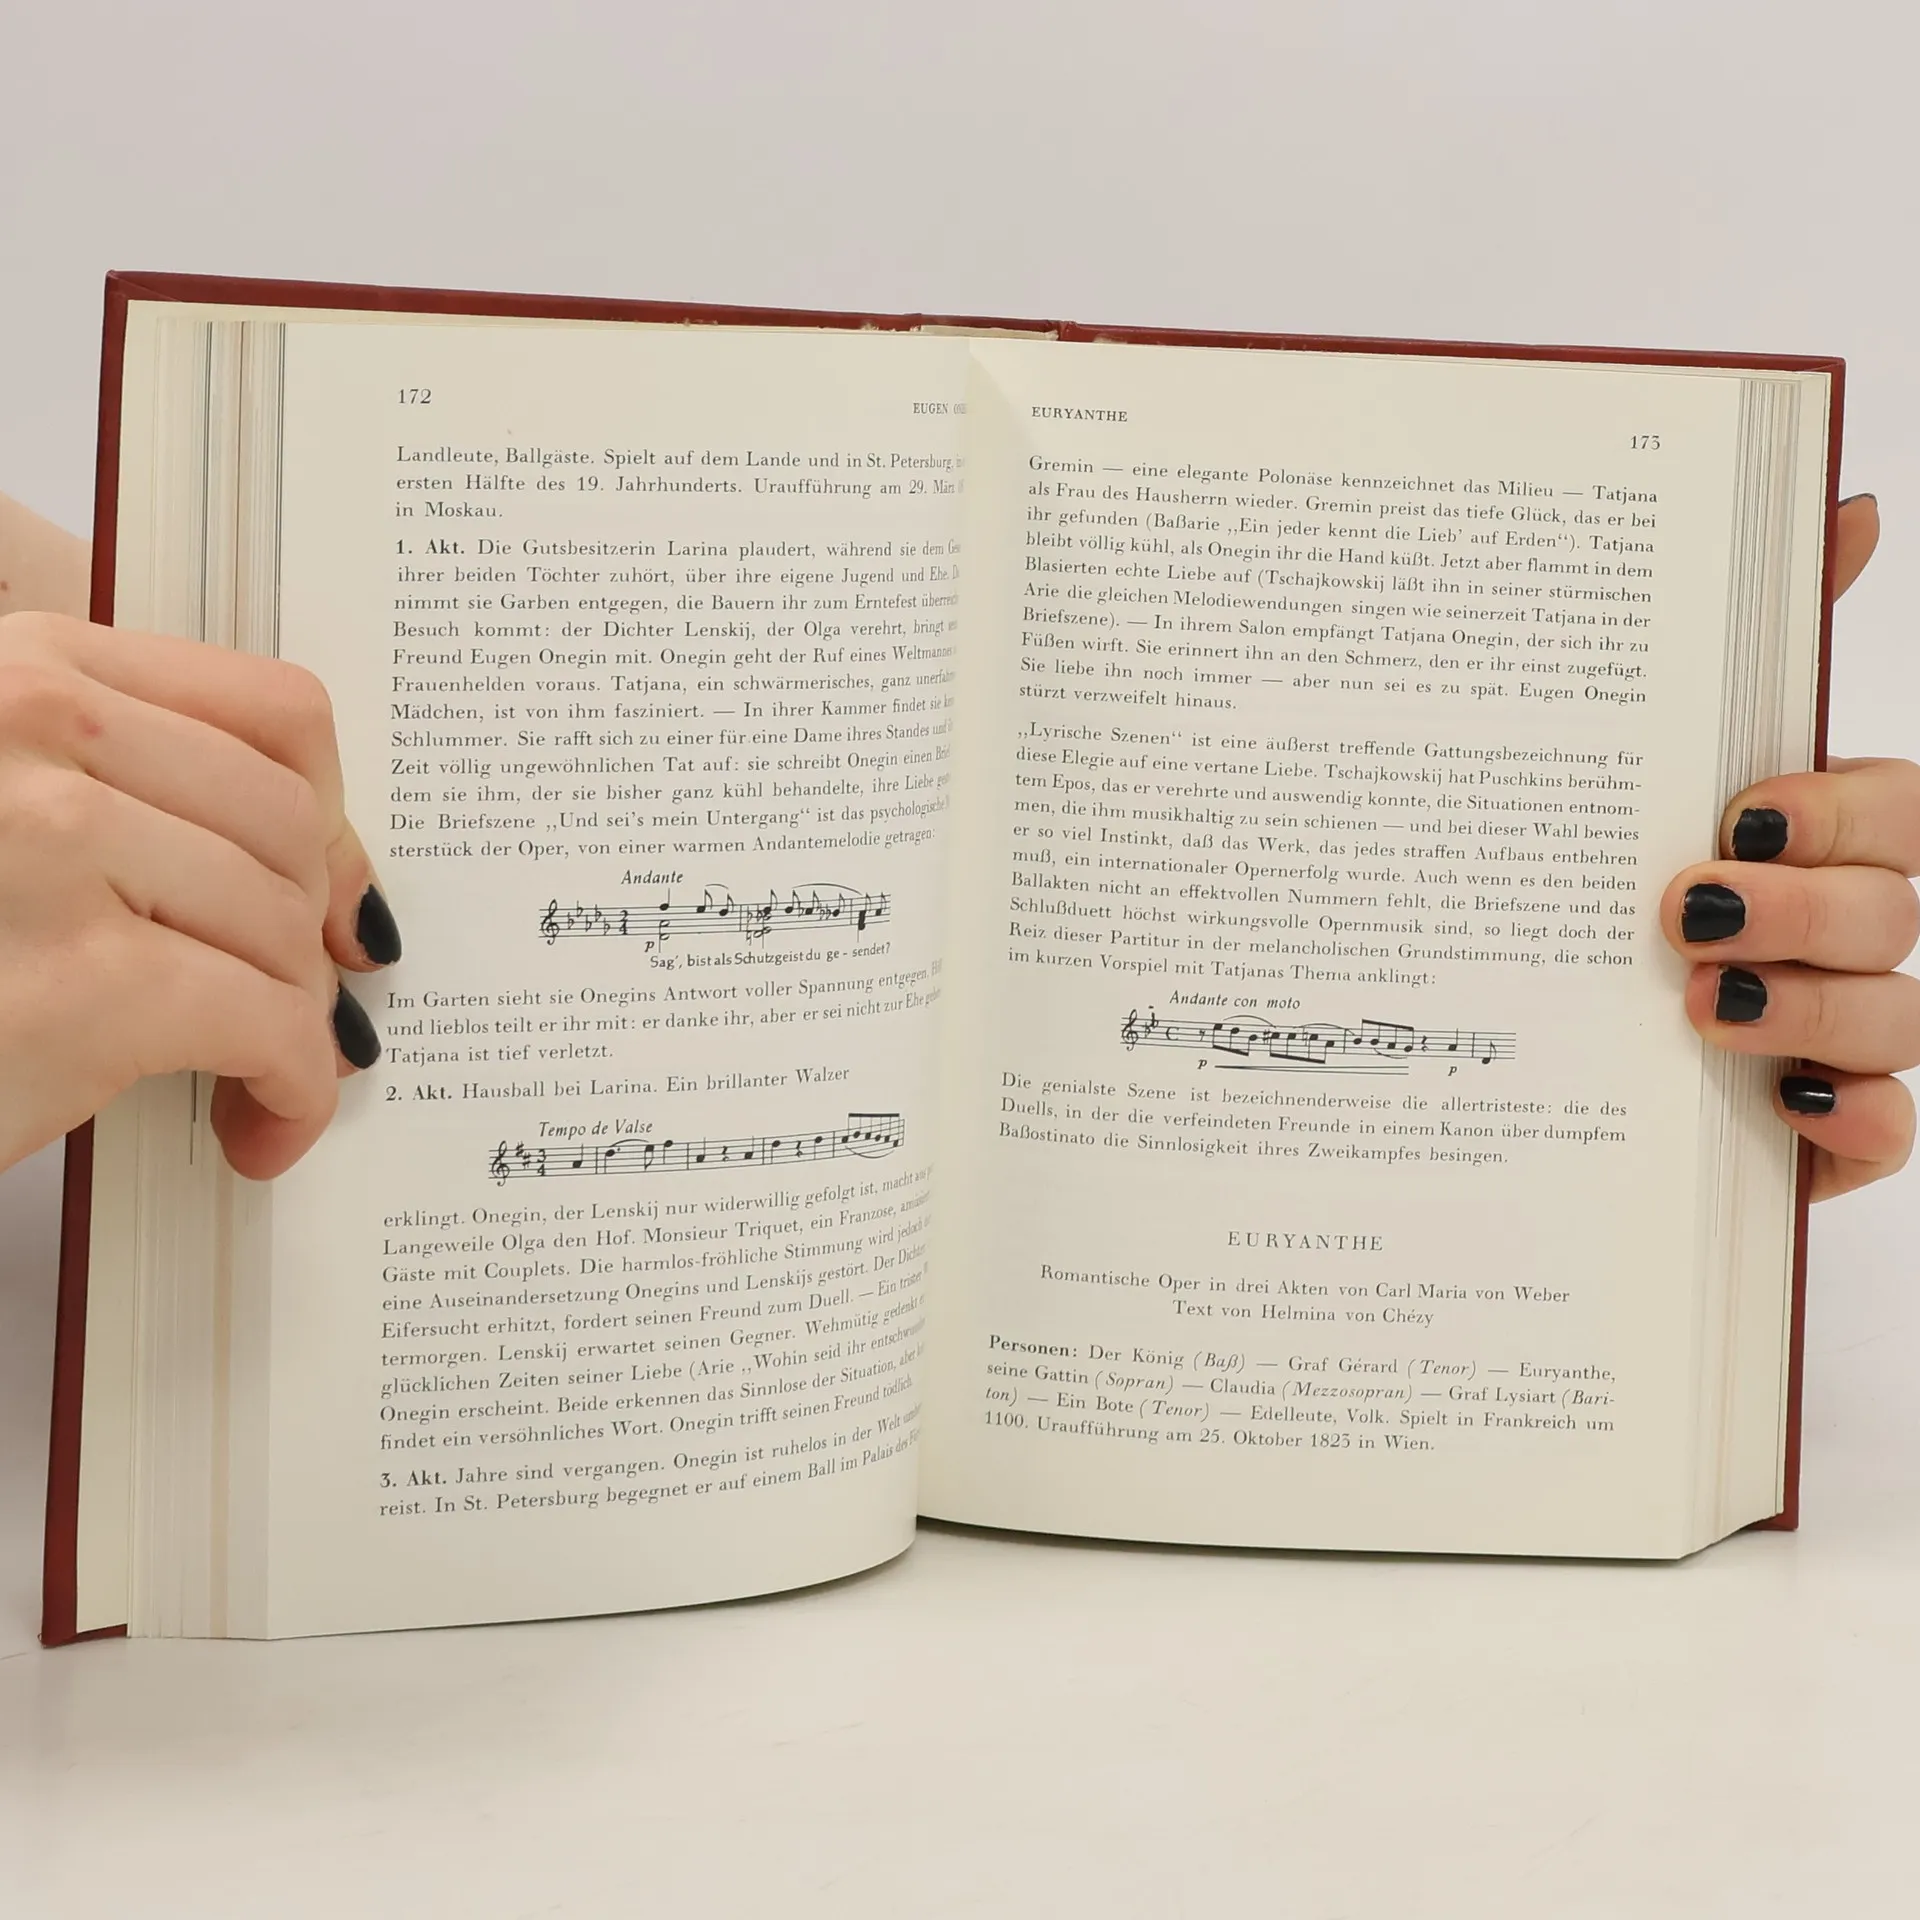 172
EUGEN
Landleute, Ballgäste. Spielt auf dem Lande und in St. Petersburg,
ersten Hälfte des 19. Jahrhunderts. Uraufführung am 29. März
in Moskau.
1. Akt. Die Gutsbesitzerin Larina plaudert, während sie dem
ihrer beiden Töchter zuhört, über ihre eigene Jugend und Ehe.
nimmt sie Garben entgegen, die Bauern ihr zum Erntefest
Besuch kommt: der Dichter Lenskij, der Olga verehrt, bringt
Freund Eugen Onegin mit. Onegin geht der Ruf eines
Frauenhelden voraus. Tatjana, ein schwärmerisches, ganz
Mädchen, ist von ihm fasziniert. — In ihrer Kammer findet sie
Schlummer. Sie rafft sich zu einer für eine Dame ihres Standes und
Zeit völlig ungewöhnlichen Tat auf: sie schreibt Onegin einen
dem sie ihm, der sie bisher ganz kühl behandelte, ihre Liebe
Die Briefszene „Und sei's mein Untergang“ ist das psychologische
sterstück der Oper, von einer warmen Andantemelodie getragen:
Andante
p
Sag', bist als Schutzgeist du ge - sendet?
Im Garten sieht sie Onegins Antwort voller Spannung entgegen.
und lieblos teilt er ihr mit: er danke ihr, aber er sei nicht zur Ehe
Tatjana ist tief verletzt.
2. Akt. Hausball bei Larina. Ein brillanter Walzer
Tempo de Valse
erklingt. Onegin, der Lenskij nur widerwillig gefolgt ist, macht aus
Langeweile Olga den Hof. Monsieur Triquet, ein Franzose,
Gäste mit Couplets. Die harmlos-fröhliche Stimmung wird jedoch
eine Auseinandersetzung Onegins und Lenskijs gestört. Der
Eifersucht erhitzt, fordert seinen Freund zum Duell. — Ein trister
termorgen. Lenskij erwartet seinen Gegner. Wehmütig gedenkt
glücklichen Zeiten seiner Liebe (Arie „Wohin seid ihr
Onegin erscheint. Beide erkennen das Sinnlose der Situation, aber
findet ein versöhnliches Wort. Onegin trifft seinen Freund tödlich.
3. Akt. Jahre sind vergangen. Onegin ist ruhelos in der Welt
reist. In St. Petersburg begegnet er auf einem Ball im Palais des
EURYANTHE
173
Gremin — eine elegante Polonäse kennzeichnet das Milieu — Tatjana
als Frau des Hausherrn wieder. Gremin preist das tiefe Glück, das er bei
ihr gefunden (Baßarie „Ein jeder kennt die Lieb' auf Erden“). Tatjana
bleibt völlig kühl, als Onegin ihr die Hand küßt. Jetzt aber flammt in dem
Blasierten echte Liebe auf (Tschajkowskij läßt ihn in seiner stürmischen
Arie die gleichen Melodiewendungen singen wie seinerzeit Tatjana in der
Briefszene). — In ihrem Salon empfängt Tatjana Onegin, der sich ihr zu
Füßen wirft. Sie erinnert ihn an den Schmerz, den er ihr einst zugefügt.
Sie liebe ihn noch immer — aber nun sei es zu spät. Eugen Onegin
stürzt verzweifelt hinaus.
„Lyrische Szenen“ ist eine äußerst treffende Gattungsbezeichnung für
diese Elegie auf eine vertane Liebe. Tschajkowskij hat Puschkins berühm-
tem Epos, das er verehrte und auswendig konnte, die Situationen entnom-
men, die ihm musikhaltig zu sein schienen — und bei dieser Wahl bewies
er so viel Instinkt, daß das Werk, das jedes straffen Aufbaus entbehren
muß, ein internationaler Opernerfolg wurde. Auch wenn es den beiden
Ballakten nicht an effektvollen Nummern fehlt, die Briefszene und das
Schlußduett höchst wirkungsvolle Opernmusik sind, so liegt doch der
Reiz dieser Partitur in der melancholischen Grundstimmung, die schon
im kurzen Vorspiel mit Tatjanas Thema anklingt:
Andante con moto
p p
Die genialste Szene ist bezeichnenderweise die allertristeste: die des
Duells, in der die verfeindeten Freunde in einem Kanon über dumpfem
Baßostinato die Sinnlosigkeit ihres Zweikampfes besingen.
EURYANTHE
Romantische Oper in drei Akten von Carl Maria von Weber
Text von Helmina von Chézy
Personen: Der König (Baß) — Graf Gérard (Tenor) — Euryanthe,
seine Gattin (Sopran) — Claudia (Mezzosopran) — Graf Lysiart (Bari-
ton) — Ein Bote (Tenor) — Edelleute, Volk. Spielt in Frankreich um
1100. Uraufführung am 25. Oktober 1823 in Wien.